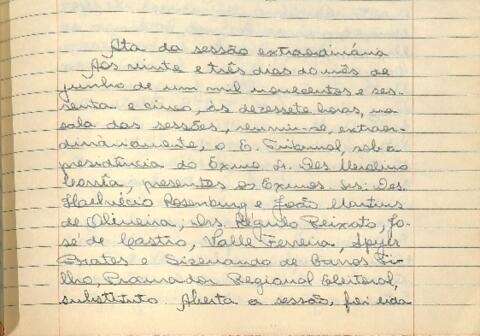 Ata da sessão extraordinária
Aos vinte e três dias do mês de
junho de um mil novecentos e ses-
senta e cinco, às dezessete horas, na
sala das sessões, reuniu-se, extraor-
dinariamente, o E. Tribunal, sob a
presidência do Exmo Sr. Des. Merolino
Corrêa, presentes os Exmos. Srs. Des.
Helvécio Rosenburg e João Martins
de Oliveira, Drs. Régulo Peixoto, Jo-
sé de Castro, Valle Ferreira,
Prates e Sizenando de Barros Fi-
lho, Procurador Regional Eleitoral,
substituto. Aberta a sessão, foi lida